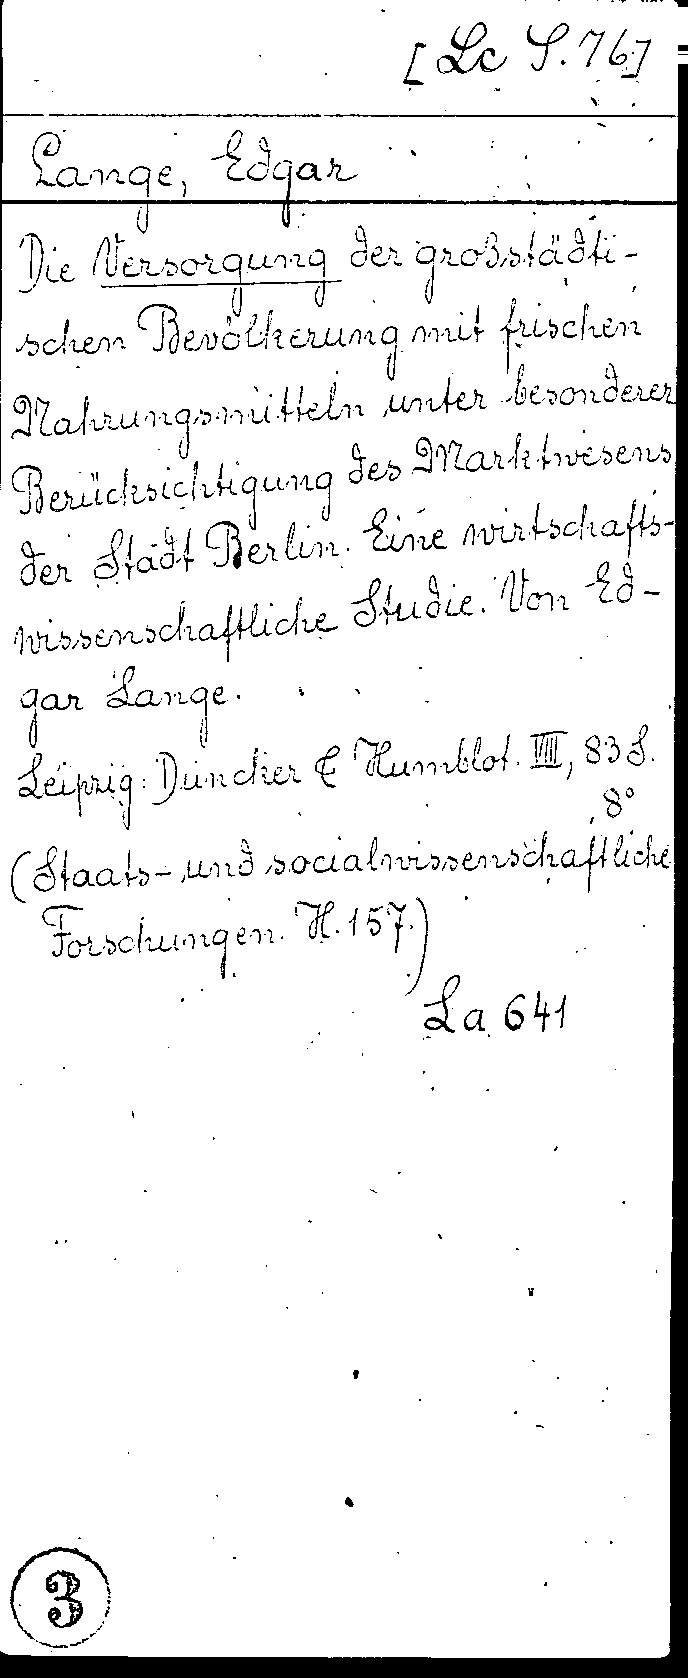 [Lc S. 76]
Lange, Edgar
Die Versorgung der großstädti-
schen Bevölkerung mit frischen
Nahrungsmitteln unter besonderer
Berücksichtigung des Marktwesens
der Stadt Berlin. Eine wirtschafts-
wissenschaftliche Studie. Von Ed-
gar Lange.
Leipzig: Duncker & Humblot. VIII, 83 S.
8°
(Staats- und socialwissenschaftliche
Forschungen. H. 157.)
La 641
3